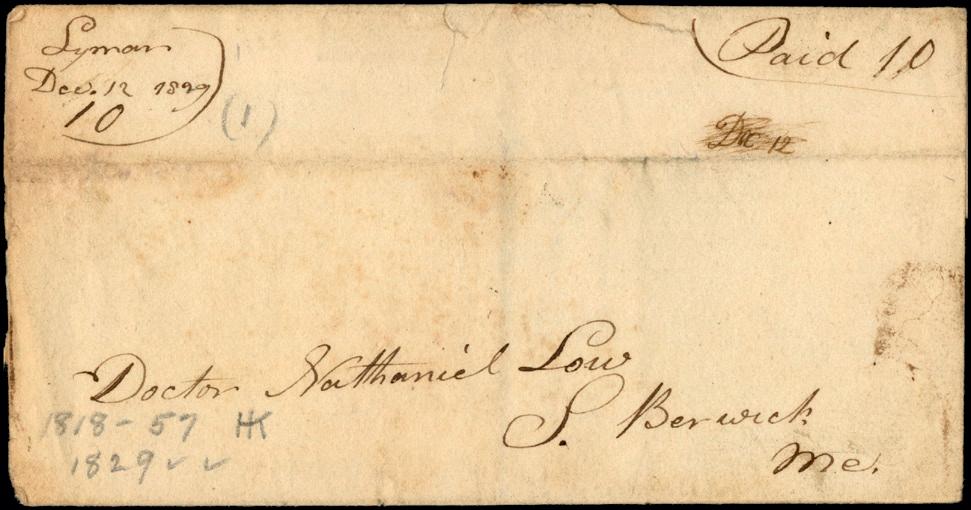 Lyman
Dec. 12 1829
10
(1)
Paid 10
Dec 12
Doctor Nathaniel Low
S. Berwick
Me.
1818-57 HK
1829 ✓ ✓